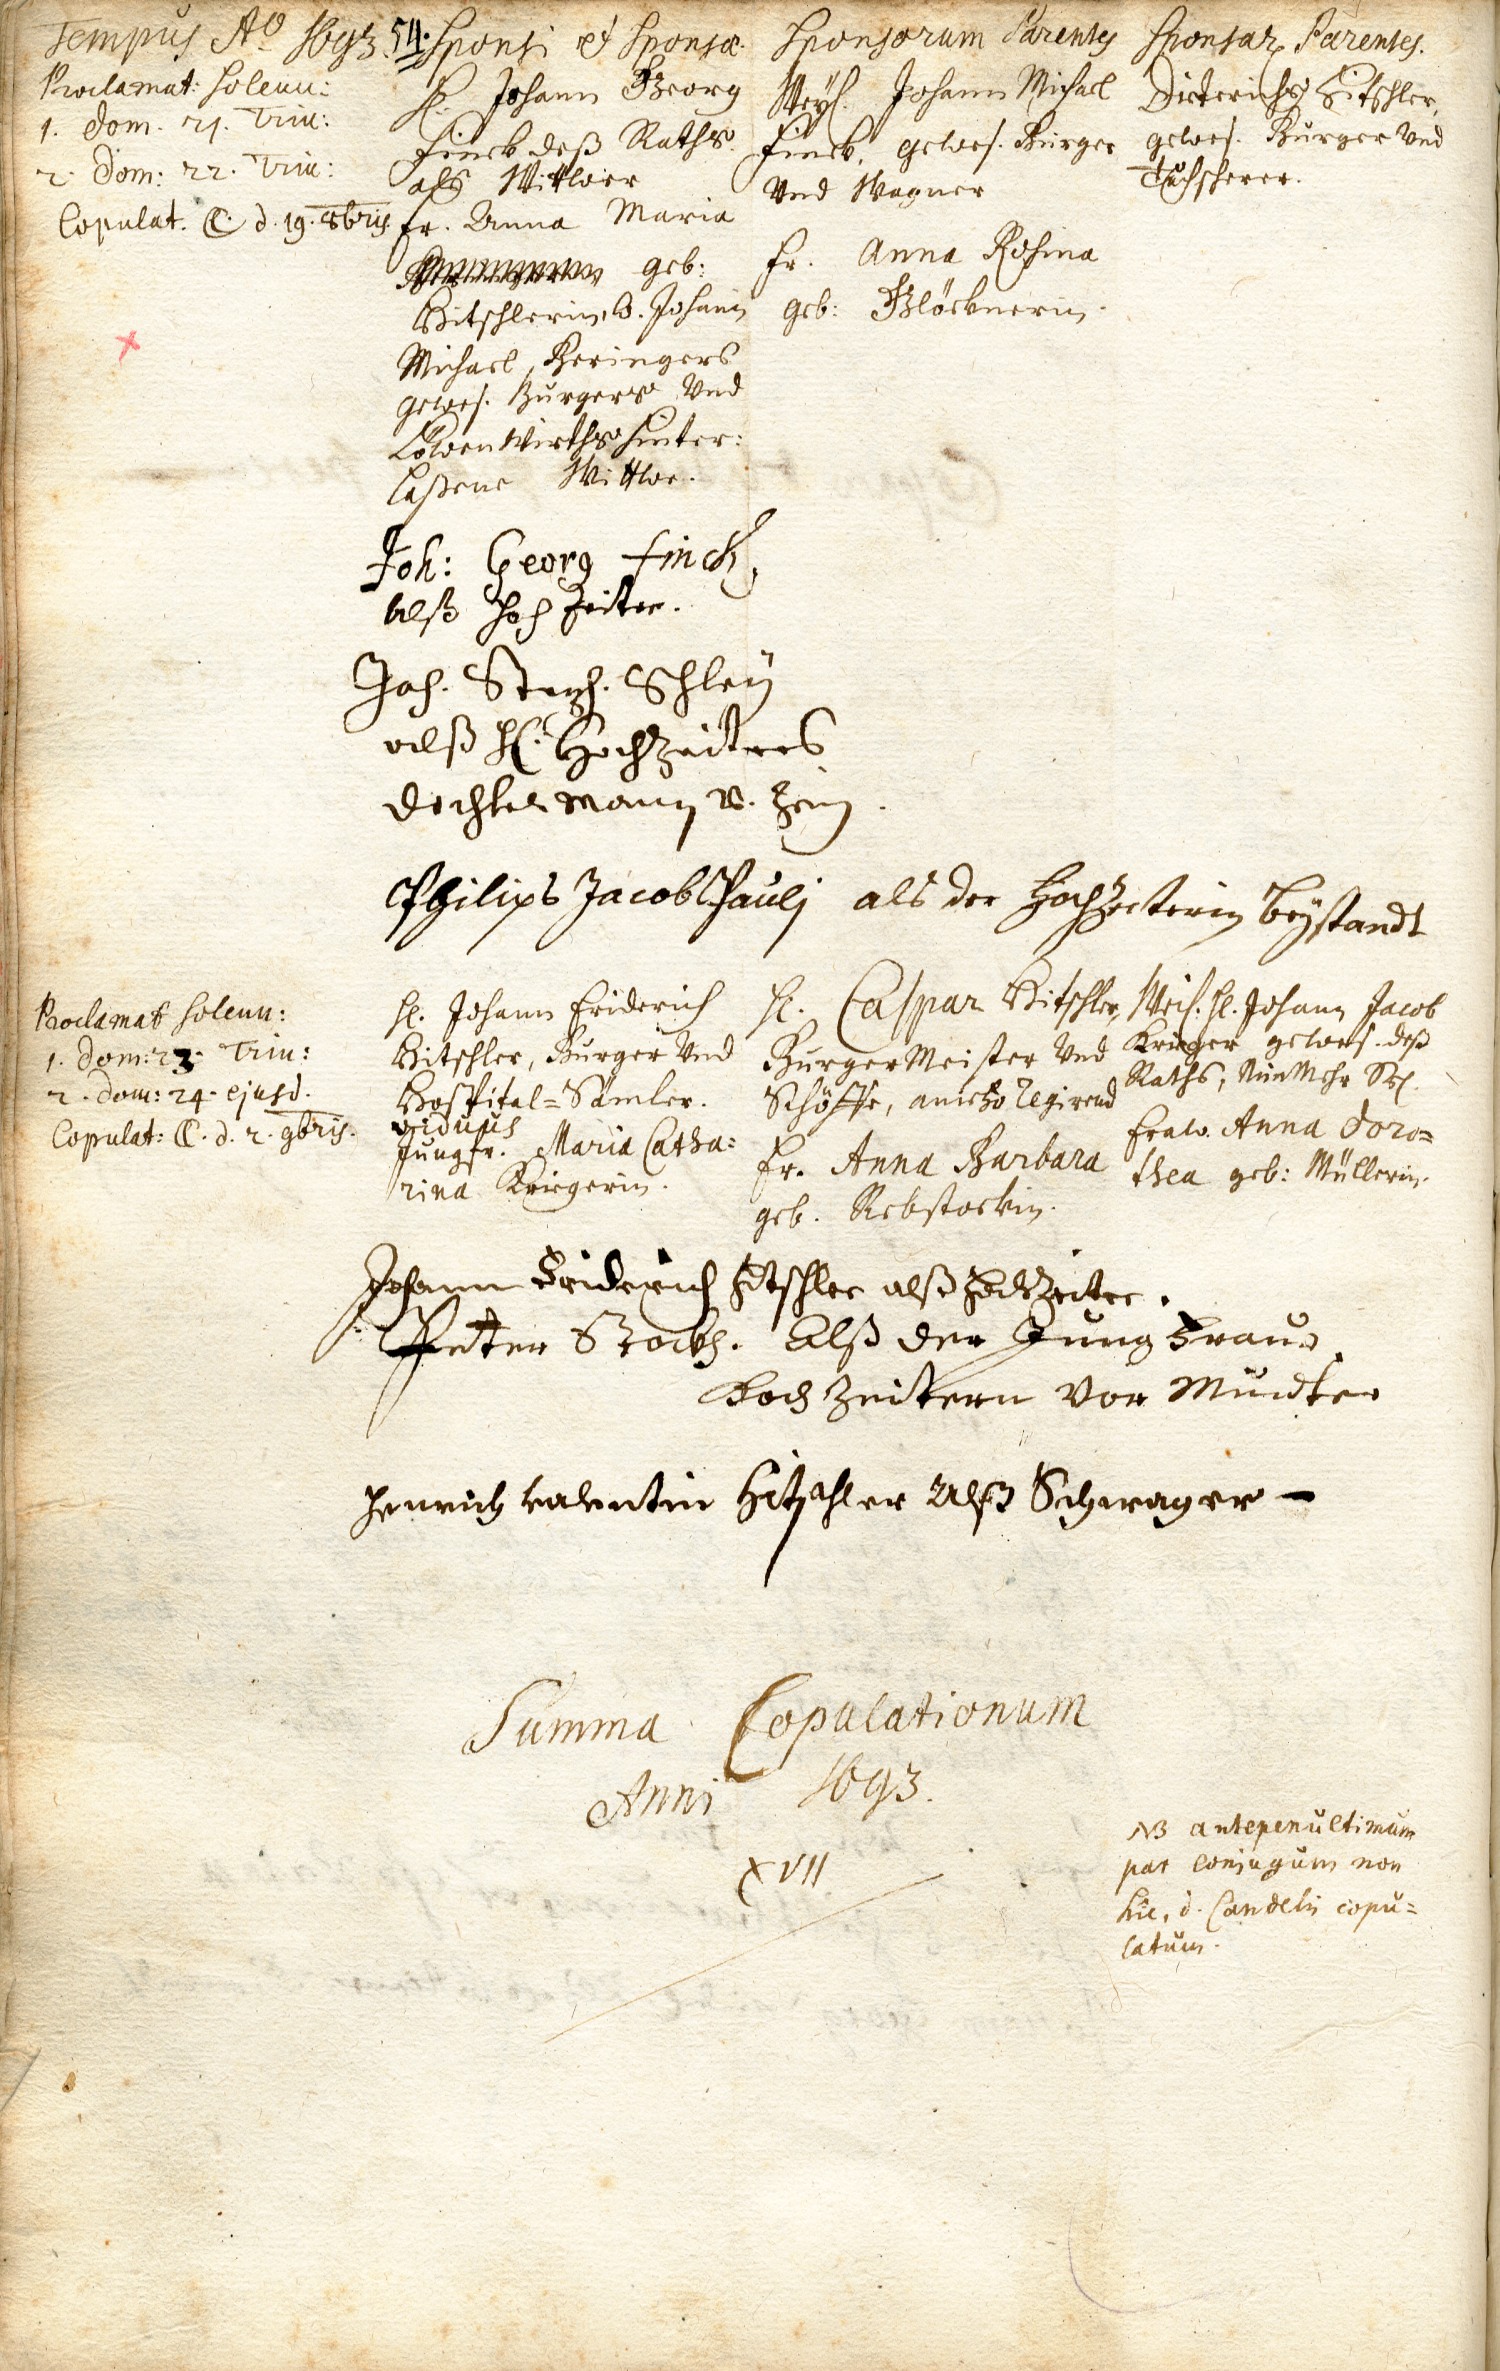 Tempus Aõ 1693. 54. Sponsi et Sponsæ. Sponsorum Parentes Sponsar. Parentes.
Proclamat: solenn:
1. Dom. 21. Trin:
2. Dom: 22. Trin:
Copulat. C. d. 19. 8bris.
H. Johann Georg
Finck deß Raths.
alß Wittwer
Fr. Anna Maria
geb:
Hitschlerin, H. Johann
Michael Beringers
gewes. Burgers Und
Löwen Wirths hinter:
laßene Wittwe.
Weyl. Johann Michael
Finck, gewes. Burger
Und Wagner
Fr. Anna Rosina
geb: Glöcknerin.
Dieterichs Hitschler,
gewes. Burger Und
Tuchscherer.
Joh: Georg Finck,
alß hochzeiter.
Joh. Steph. Schley
alß H. Hochzeiters
dochtermann
Philips Jacob Paulj als der Hochzeiterin beystandt
Proclamat solenn:
1. Dom: 23. Trin:
2. Dom: 24. ejusd.
Copulat: C. d. 2. 9bris.
H. Johann Friderich
Hitschler, Burger Und
Hospital-Sämler.
viduus
Jungfr. Maria Catha:
rina Kriegerin.
H. Caspar Hitschler,
Burger Meister Und
Schöffe, anietzo regirend
Fr. Anna Barbara
geb. Rebstockin.
Weil. H. Johann Jacob
Krieger gewes. deß
Raths, NunMehr Sel.
Fraw. Anna Doro=
thea geb: Müllerin.
Johann Friderich Hitschler alß hochzeiter.
Petter Stockh. Alß der Jung Frauw
Hochzeitern Vor Mundter
Henrich valentin Hitschler Alß Schwager –
Summa Copulationum
Anni 1693.
XVII
NB antepenultimum
par conjugum non
hîc, s. Candeln copu=
latum.